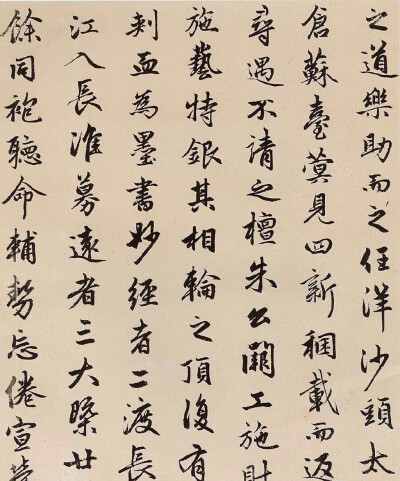 之道樂助而之任洋沙頭太
倉蘇臺蓂見四新稛載而返
尋遇不請之檀朱公闢工施財
施藝特銀其相輪之頂復有
刺血為墨書妙經者二渡長
江入長淮募遠者三大槩廿
餘同袍聽命輔勢忘倦宣